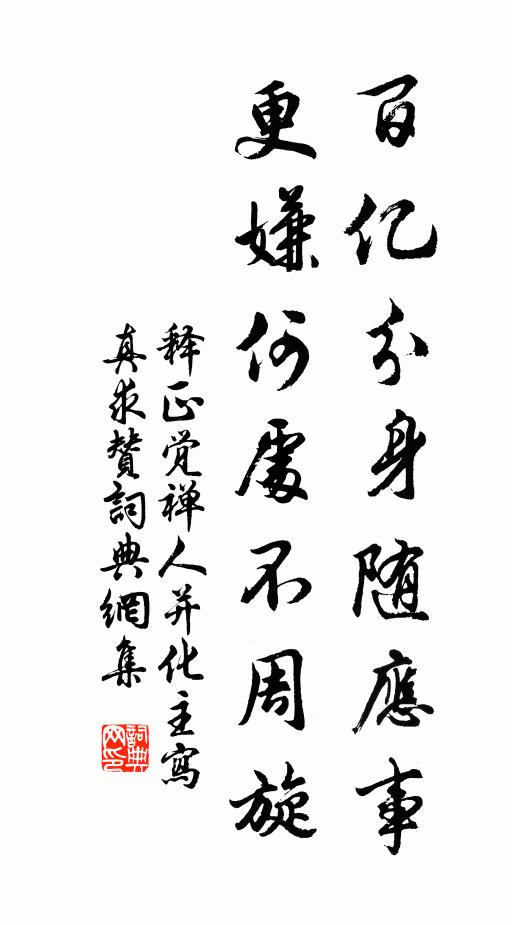 百亿分身随應事
更嫌何處不周旋
释正觉禅人并化主寫
真求赞詞典網集
詞典网印